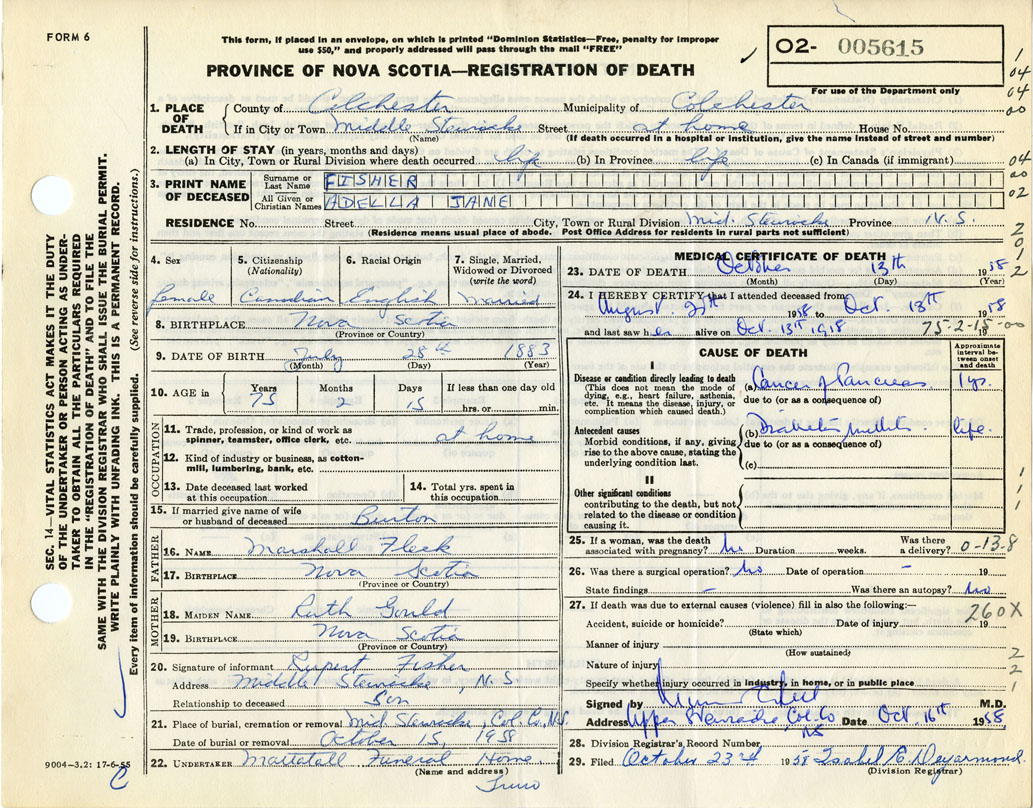 FORM 6
This form, if placed in an envelope, on which is printed "Dominion Statistics—Free, penalty for improper
use $50," and properly addressed will pass through the mail "FREE"
PROVINCE OF NOVA SCOTIA—REGISTRATION OF DEATH
02- 005615
For use of the Department only
1. PLACE OF DEATH
County of Colchester Municipality of Colchester
If in City or Town Middle Stewiacke Street at home House No.
(Name) (If death occurred in a hospital or institution, give the name instead of street and number)
2. LENGTH OF STAY (in years, months and days)
(a) In City, Town or Rural Division where death occurred life (b) In Province life (c) In Canada (if immigrant)
3. PRINT NAME OF DECEASED
Surname or Last Name FISHER
All Given or Christian Names ADELLA JANE
RESIDENCE No. Street City, Town or Rural Division Mid. Stewiacke Province N.S.
(Residence means usual place of abode. Post Office Address for residents in rural parts not sufficient)
4. Sex
female
5. Citizenship
(Nationality)
Canadian
6. Racial Origin
English
7. Single, Married,
Widowed or Divorced
(write the word)
Married
8. BIRTHPLACE Nova Scotia
(Province or Country)
9. DATE OF BIRTH July 28th 1883
(Month) (Day) (Year)
10. AGE in
Years 75
Months 2
Days 15
If less than one day old
hrs. or min.
OCCUPATION
11. Trade, profession, or kind of work as
spinner, teamster, office clerk, etc. at home
12. Kind of industry or business, as cotton-
mill, lumbering, bank, etc.
13. Date deceased last worked
at this occupation
14. Total yrs. spent in
this occupation
15. If married give name of wife
or husband of deceased Burton
FATHER
16. NAME Marshall Fleck
17. BIRTHPLACE Nova Scotia
(Province or Country)
MOTHER
18. MAIDEN NAME Ruth Gould
19. BIRTHPLACE Nova Scotia
(Province or Country)
20. Signature of informant Rupert Fisher
Address Middle Stewiacke, N.S
Relationship to deceased Son
21. Place of burial, cremation or removal Mid Stewiacke, Col. Co, N.S.
Date of burial or removal October 15, 1958
22. UNDERTAKER Mattatall Funeral Home
(Name and address)
Truro
MEDICAL CERTIFICATE OF DEATH
23. DATE OF DEATH October 13th 1958
(Month) (Day) (Year)
24. I HEREBY CERTIFY that I attended deceased from
August 1958 to Oct. 13th 1958
and last saw her alive on Oct. 13th 1958 19
75-2-15-00
CAUSE OF DEATH
Approximate
interval be-
tween onset
and death
I
Disease or condition directly leading to death
(This does not mean the mode of
dying, e.g., heart failure, asthenia,
etc. It means the disease, injury, or
complication which caused death.)
(a) Cancer of Pancreas 1 yr.
due to (or as a consequence of)
Antecedent causes
Morbid conditions, if any, giving
rise to the above cause, stating the
underlying condition last.
(b) Diabetes Mellitis life.
due to (or as a consequence of)
(c)
II
Other significant conditions
contributing to the death, but not
related to the disease or condition
causing it.
25. If a woman, was the death
associated with pregnancy? No Duration weeks. Was there
a delivery? 0-13-8
26. Was there a surgical operation? No Date of operation – 19
State findings – Was there an autopsy? No
27. If death was due to external causes (violence) fill in also the following:—
260X
Accident, suicide or homicide? Date of injury 19
(State which)
Manner of injury
(How sustained)
Nature of injury
Specify whether injury occurred in industry, in home, or in public place
Signed by M.D.
Address Upper Stewiacke Col. Co NS Date Oct. 16th 1958
28. Division Registrar's Record Number
29. Filed October 23rd 1958 Isabel E. Deyarmond
(Division Registrar)
SEC. 14—VITAL STATISTICS ACT MAKES IT THE DUTY
OF THE UNDERTAKER OR PERSON ACTING AS UNDER-
TAKER TO OBTAIN ALL THE PARTICULARS REQUIRED
IN THE "REGISTRATION OF DEATH" AND TO FILE THE
SAME WITH THE DIVISION REGISTRAR WHO SHALL ISSUE THE BURIAL PERMIT.
WRITE PLAINLY WITH UNFADING INK. THIS IS A PERMANENT RECORD.
Every item of information should be carefully supplied. (See reverse side for instructions.)
9004—3.2: 17-6-55
C
1
04
04
00
04
00
02
2
0
1
2
1
1
1
2
2
1